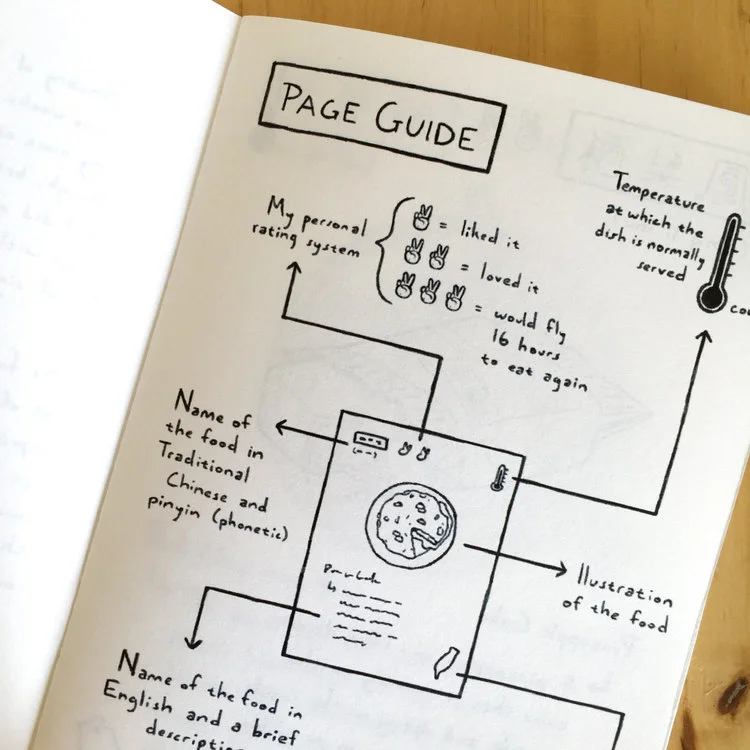 PAGE GUIDE
My personal
rating system
= liked it
= loved it
= would fly
16 hours
to eat again
Temperature
at which the
dish is normally
served
Name of
the food in
Traditional
Chinese and
pinyin (phonetic)
Illustration
of the food
Name of the food in
English and a brief